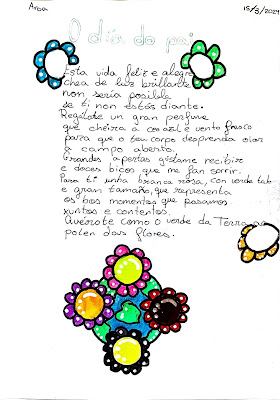 Aroa 15/3/2024
O día do pai
Esta vida feliz e alegre
chea de luz brillante
non sería posible
se ti non estás diante.
Regálote un gran perfume
que cheira a corazol e vento fresco
para que o seu corpo desprenda olor
a campo aberto.
Grandes apertas gústame recibir
e doces bicos que me fan sorrir.
Para ti unha branca rosa, con verde tallo
e gran tamaño, que representa
os bos momentos que pasamos
xuntos e contentos.
Quérote como o verde da Terra ao
polen das flores.